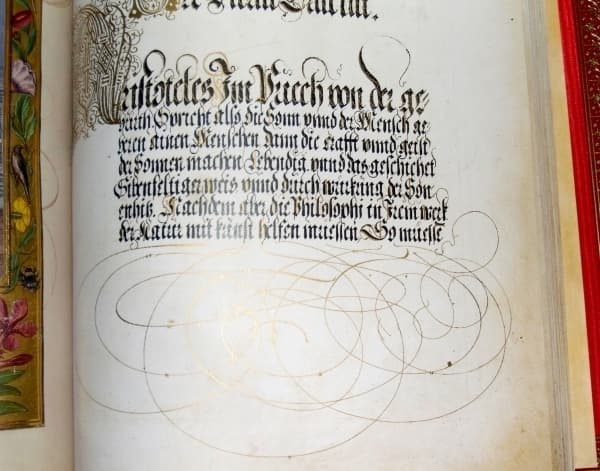 Aristoteles Im Püech von der ge=
burth Spricht also die Sonn vnnd der Mensch ge
beren ainen Menschen Dann die krafft vnnd geist
der Sonnen machen Lebendig vnnd das geschiehet
Sibenfeltiger weis vnnd durch wurckung der Son
enhitz. Nachdem aber die Philosophi in Irem werk
der Natur mit kunst helfen muessen So muesse